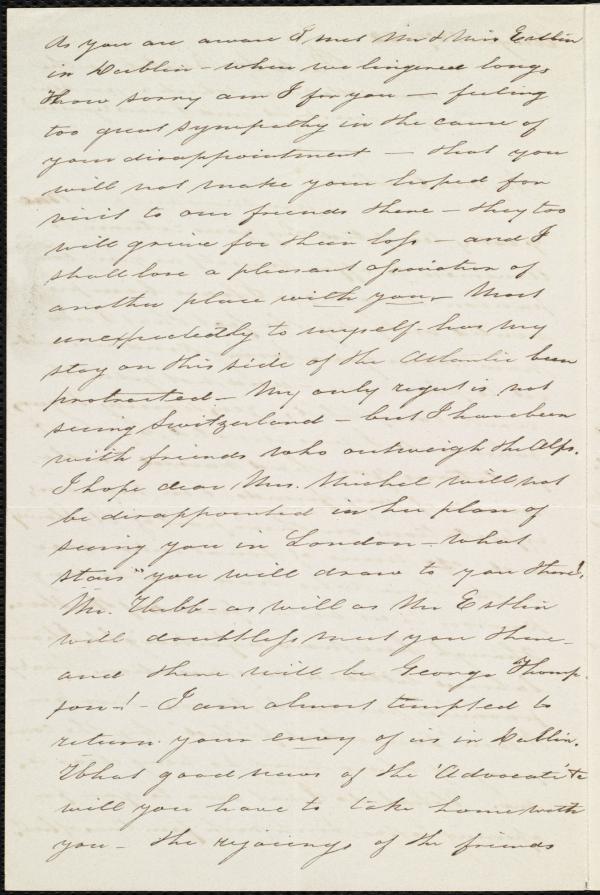 As you are aware I met Mr & Miss Estlin
in Dublin - when we lingered long,
How sorry am I for you — feeling
too great sympathy in the cause of
your disappointment — that you
will not make your hoped for
visit to our friends there — they too
will grieve for their loss — and I
shall lose a pleasant association of
another place with you. Most
unexpectedly to myself has my
stay on this side of the Atlantic been
protracted — My only regret is not
seeing Switzerland — but I have been
with friends who outweigh the Alps.
I hope dear Mrs. Michel will not
be disappointed in her plan of
seeing you in London — What
"stars" you will draw to you there!
Mr. Webb - as well as Mr Estlin
will doubtless meet you there -
and there will be George Thomp-
son! - I am almost tempted to
return your envy of us in Dublin.
What good news of the 'Advocate' &c
will you have to take home with
you - the rejoicings of the friends